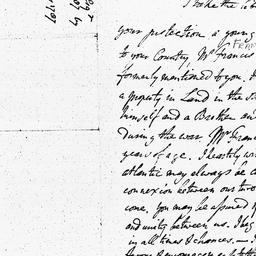 I take the lib
your protection a young
FRAN
to your Country, Mr Francis
formerly mentioned to you.
a property in Land in the
himself and a Brother an
During the war Mr Fran
years of age. I heartily w
atlantic may always be c
connexion between our two
cone. You may be assured
and unity between us. I beg
in all times & chances. —